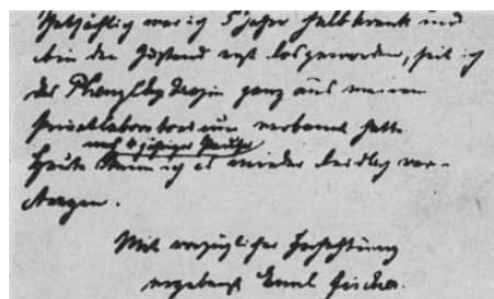 Thatsächlich war ich 5 Jahre halb krank und
bin den Zustand erst losgeworden, seit ich
das Phenylhydrazin ganz aus meinem
Privatlaboratorium verbannt hatte.
nach 4 jähriger Pause
Heute kann ich es wieder leidlich ver-
tragen.
Mit vorzüglicher Hochachtung
ergebenst Emil Fischer.